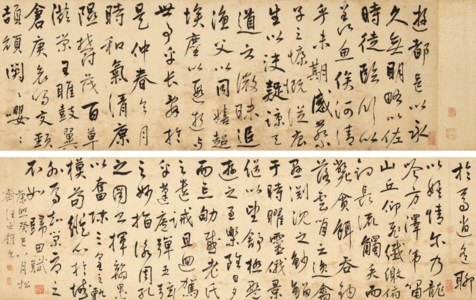 遊都邑以永
久無明略以佐
時徒臨川以
羨魚俟河清
乎未期感蔡
子之慷慨從唐
生以決疑諒天
道之微昧追
漁父以同嬉超
埃塵以遐逝與
世事乎長辭於
是仲春令月
時和氣清原
隰鬱茂百草
滋榮王雎鼓翼
倉庚哀鳴交頸
頡頏關關嚶嚶
於焉逍遙聊
以娛情爾乃龍
吟方澤虎嘯
山丘仰飛纖繳俯
釣長流觸矢而
斃貪餌吞鉤
落雲
于時曜靈俄景
係以望舒極般
遊之至樂雖日夕
而忘劬感老氏
之遺誡將迴駕
乎蓬廬彈五弦
之妙指詠周孔
之圖書揮翰墨
以奮藻陳三皇之軌
模苟縱心於物
外安知榮辱之
所如 歸田賦
康熙癸巳八月松